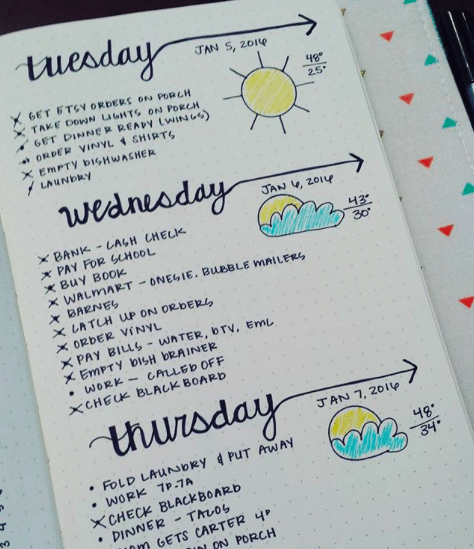 tuesday
JAN 5, 2016
48°
25°
X GET ETSY ORDERS ON PORCH
X TAKE DOWN LIGHTS ON PORCH
GET DINNER READY (WINGS)
ORDER VINYL & SHIRTS
X EMPTY DISHWASHER
/ LAUNDRY
wednesday
JAN 6, 2016
43°
30°
X BANK - CASH CHECK
X PAY FOR SCHOOL
X BUY BOOK
X WALMART - ONESIE, BUBBLE MAILERS
X BARNES
X CATCH UP ON ORDERS
X ORDER VINYL
X PAY BILLS - WATER, DTV, EML
X EMPTY DISH DRAINER
• WORK - CALLED OFF
X CHECK BLACKBOARD
thursday
JAN 7, 2016
48°
34°
• FOLD LAUNDRY & PUT AWAY
• WORK 7P-7A
X CHECK BLACKBOARD
• DINNER - TACOS
GETS CARTER 4P
ON PORCH